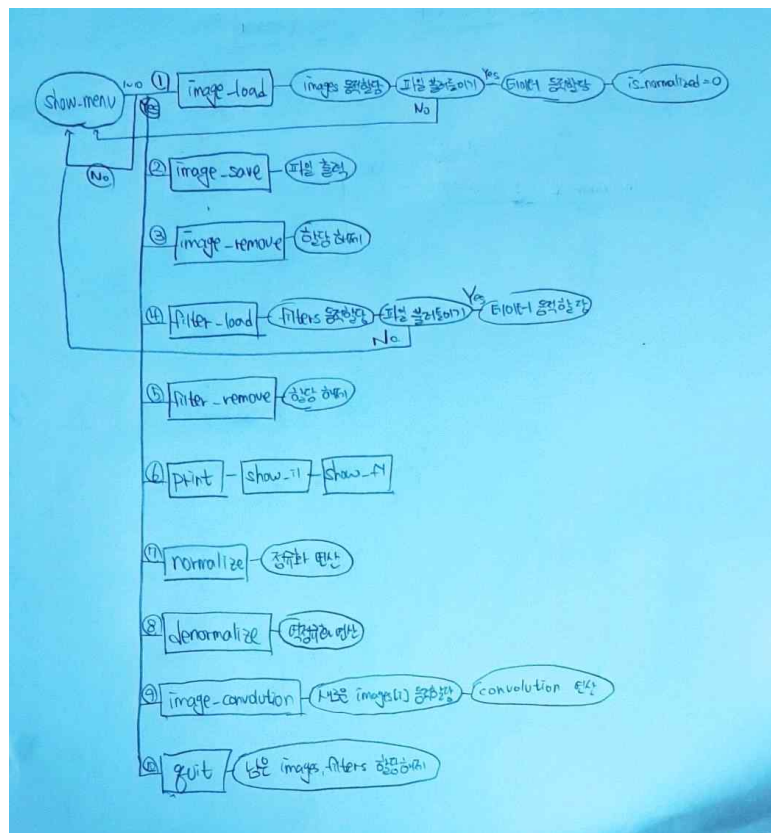 show_menu NO ① image_load images 동적할당 파일 불러들이기 Yes 데이터 동적할당 is_normalized=0
Yes
No
No
② image_save 파일 출력
③ image_remove 할당 해제
④ filter_load filters 동적할당 파일 불러들이기 Yes 데이터 동적할당
No
⑤ filter_remove 할당 해제
⑥ print show_il show_fl
⑦ normalize 정규화 연산
⑧ denormalize 역정규화 연산
⑨ image_convolution 새로운 images[i] 동적할당 convolution 연산
⑩ quit 남은 images, filters 할당해제